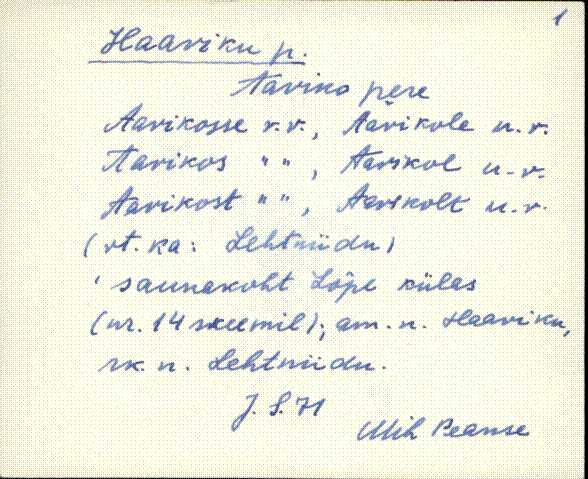 1
Haaviku p.
Aaviko pere
Aavikosse v.v., Aavikole u.v.
Aavikos " ", Aavikol u.v.
Aavikost " ", Aavikolt u.v.
(vt. ka: Lehtniidu)
' saunakoht Lõpe külas
(nr. 14 skeemil); am. n. Haaviku,
rk. n. Lehtniidu.
J. S. 71
Mih Peanse